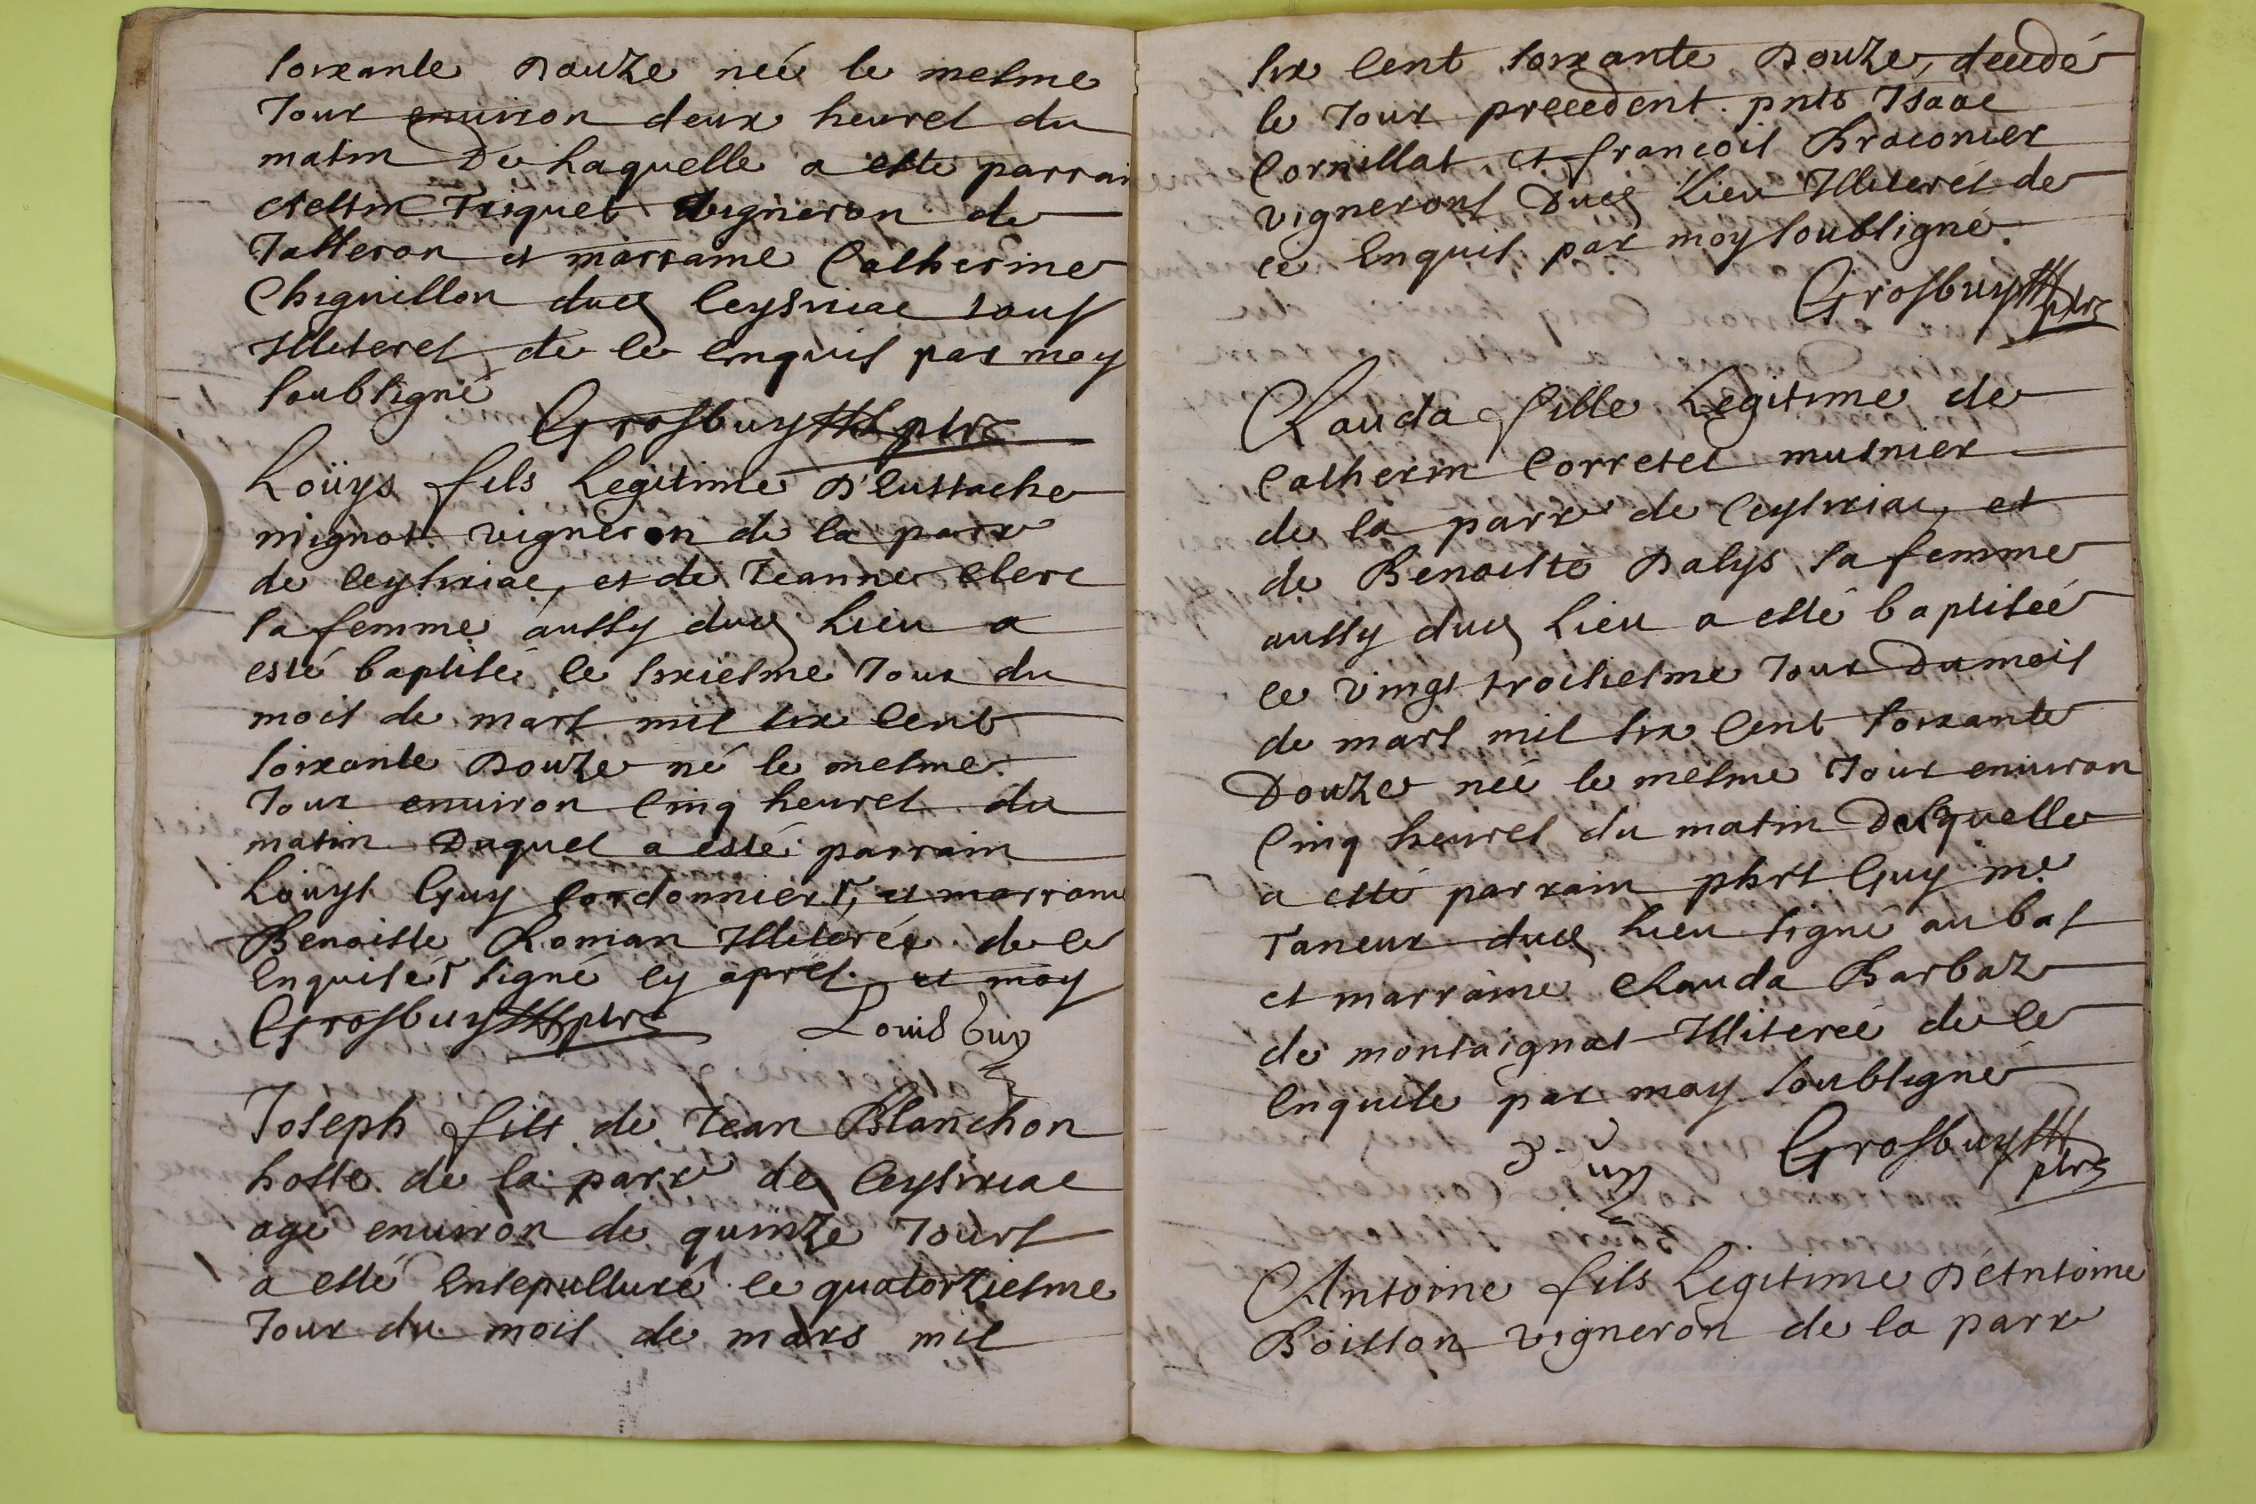 soixante douze née le mesme
Jour enuiron deux heures du
matin De Laquelle a esté parrain
Triquet vigneron de
Jasseron et marraine Catherine
Chiguillon dud Ceysiriac tous
Illiteres de ce enquis par moy
soubsigné
Grosbuy ptre
Loüys fils Legitime D'Eustache
mignot vigneron de la parr
de Ceysiriac, et de Jeanne Clerc
sa femme aussy dud Lieu a
esté baptisé le sixiesme Jour du
mois de mars mil six Cent
soixante Douze né le mesme
Jour enuiron Cinq heures du
matin Duquel a esté parrain
Loüys Guy Cordonnier, et marraine
Benoiste Roman Illiterée de ce
enquise signé cy apres et moy
Grosbuy ptre Louis Guy
Joseph fils de Jean Blanchon
hoste de la parr de Ceysiriac
agé enuiron de quinze Jours
a esté Ensepulturé le quatorziesme
Jour du mois de mars mil
six Cent soixante Douze, decedé
le Jour precedent. pnts Isaac
Cornillat et françois Braconier
vignerons Dud Lieu Illiterés de
ce Enquis par moy soubsigné
Grosbuy ptre
Clauda fille Legitime de
Catherin Corretet musnier
de la parr de Ceysiriac, et
de Benoiste Dalys sa femme
aussy dud Lieu a esté baptisée
le vingt troisiesme Jour Du mois
de mars mil six Cent soixante
Douze née le mesme Jour enuiron
Cinq heures du matin De laquelle
a esté parrain phrt Guy me
Taneur dud Lieu signé au bas
et marraine Clauda Barbaz
de montaignat Illiterée de ce
enquise par moy soubsigné
Grosbuy
ptre
Antoine fils Legitime D'Antoine
Boisson vigneron de la parr